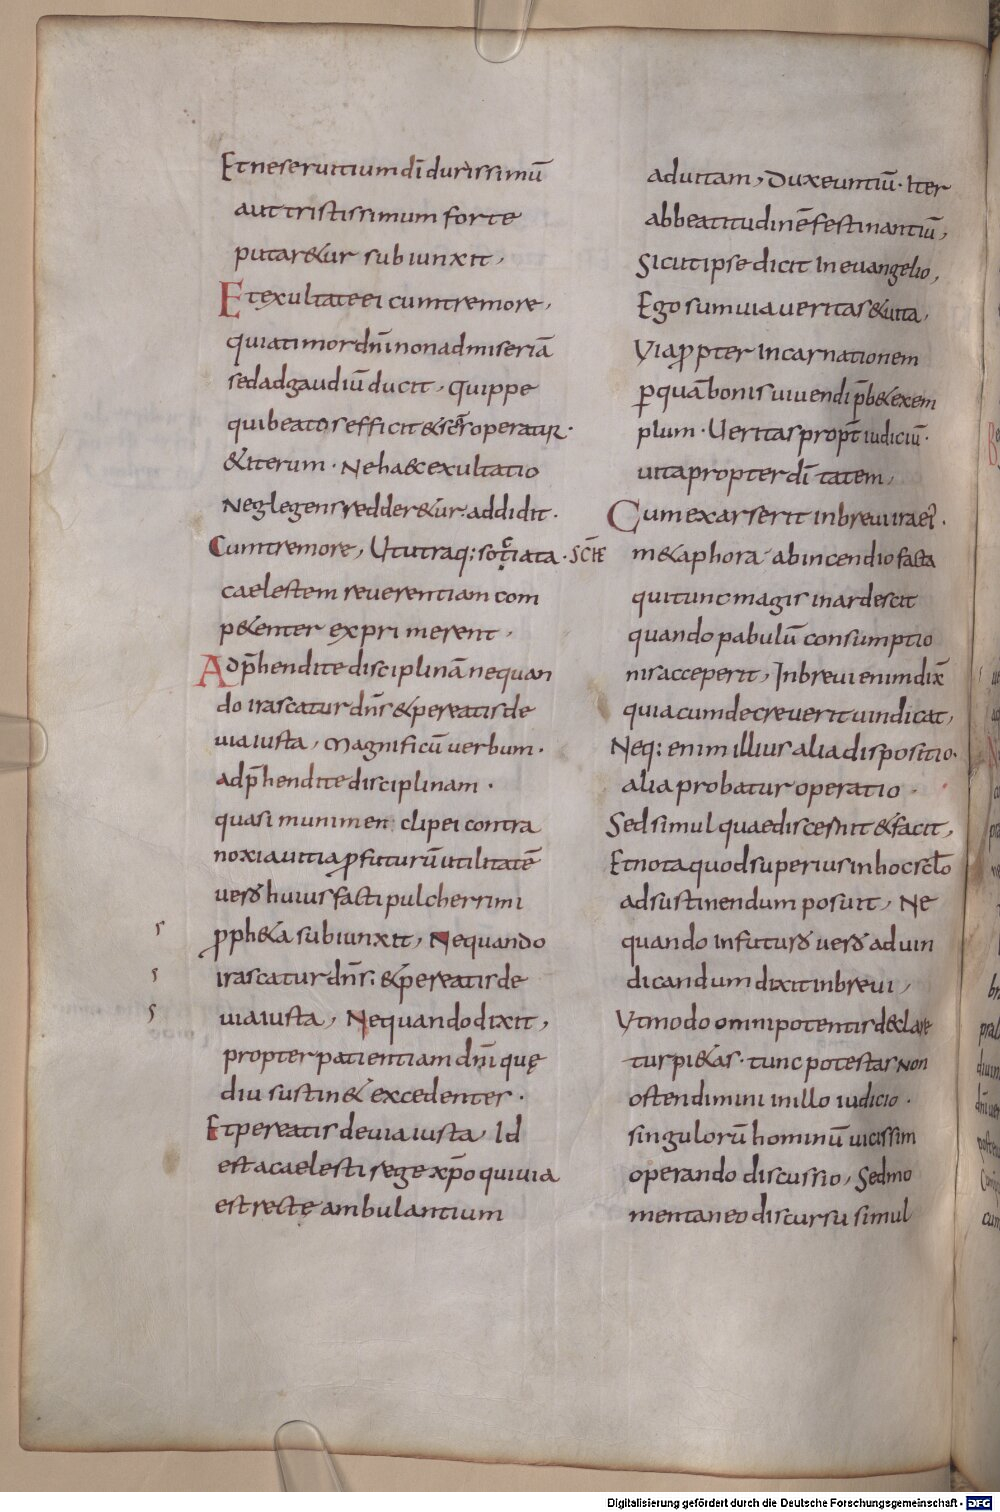 Et ne seruitium dī durissimū
aut tristissimum forte
putar&ur subiunxit,
Et exultate ei cum tremore,
quia timor dnī non ad miseriā
sed ad gaudiū ducit, quippe
qui beatos efficit & scōs operatur.
& iterum. Ne haec exultatio
Neglegens redder&ur. addidit.
Cum tremore, Ut utraq: sociata. scīt
caelestem reuerentiam com
p&enter exprimerent,
Adp̄hendite disciplinā ne quan
do irascatur dn̄s & pereatis de
uia iusta, Magnificū uerbum.
adp̄hendite disciplinam.
quasi munimen clipei contra
noxia uitia ꝓfuturū utilitatē
uero huius facti pulcherrimi
ꝓph&a subiunxit, Ne quando
irascatur dn̄s. & pereatis de
uia iusta, Ne quando dixit,
propter patientiam dnī quę
diu sustin& excedentes.
Et pereatis de uia iusta, Id
est a caelesti rege xp̄o qui uia
est recte ambulantium
ad uitam, Dux euntiū. Iter
ab beatitudinē festinantiū,
Sicut ipse dicit in euangelio,
Ego sum uia ueritas & uita,
Via ꝓpter incarnationem
ꝑ quā bonis uiuendi p̄b& exem
plum. Ueritas propt̄ iudiciū.
uita propter diītatem,
Cum exarserit in breui ira ei'.
m&aphora ab incendio facta
qui tunc magis inardescit
quando pabulū consumptio
nis acceperit, In breui enim dix̄
quia cum decreuerit uindicat,
Neq: enim illius alia dispositio.
alia probatur operatio
Sed simul quae discernit & facit,
Et nota quod superius in hoc sc̄lo
ad sustinendum posuit, Ne
quando in futuro uero ad uin
dicandum dixit in breui,
Ut modo omnipotentis declare
tur pi&as. tunc potestas Non
ostendi mini in illo iudicio.
singulorū hominū uicissim
operando discussio, Sed mo
mentaneo discursu simul
Digitalisierung gefördert durch die Deutsche Forschungsgemeinschaft - DFG